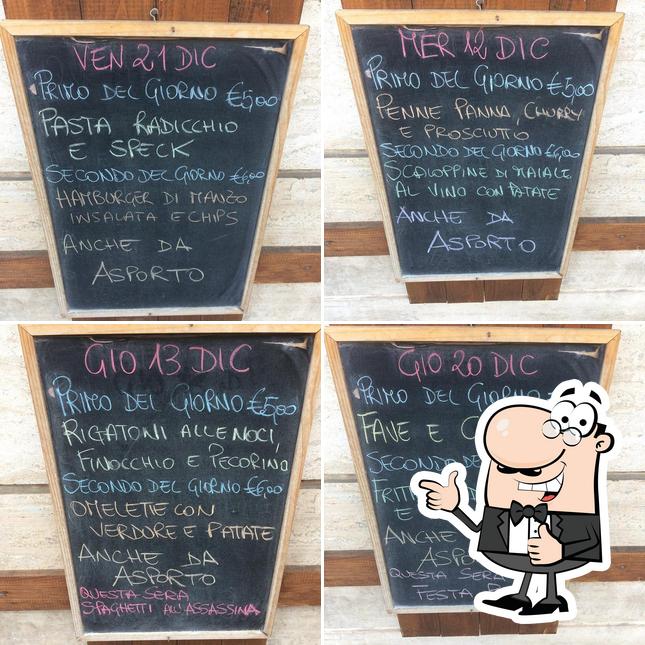 VEN 21 DIC
PRIMO DEL GIORNO €5,00
PASTA RADICCHIO
E SPECK
SECONDO DEL GIORNO €6,00
HAMBURGER DI MANZO
INSALATA E CHIPS
ANCHE DA
ASPORTO
MER 12 DIC
PRIMO DEL GIORNO €5,00
PENNE PANNA, CURRY
E PROSCIUTTO
SECONDO DEL GIORNO €6,00
SCALOPPINE DI MAIALE
AL VINO CON PATATE
ANCHE DA
ASPORTO
GIO 13 DIC
PRIMO DEL GIORNO €5,00
RIGATONI ALLE NOCI,
FINOCCHIO E PECORINO
SECONDO DEL GIORNO €6,00
OMELETTE CON
VERDURE E PATATE
ANCHE DA
ASPORTO
QUESTA SERA
SPAGHETTI ALL'ASSASSINA
GIO 20 DIC
PRIMO DEL GIORNO
FAVE E
SECONDO
E
ANCHE
QUESTA SERA
FESTA